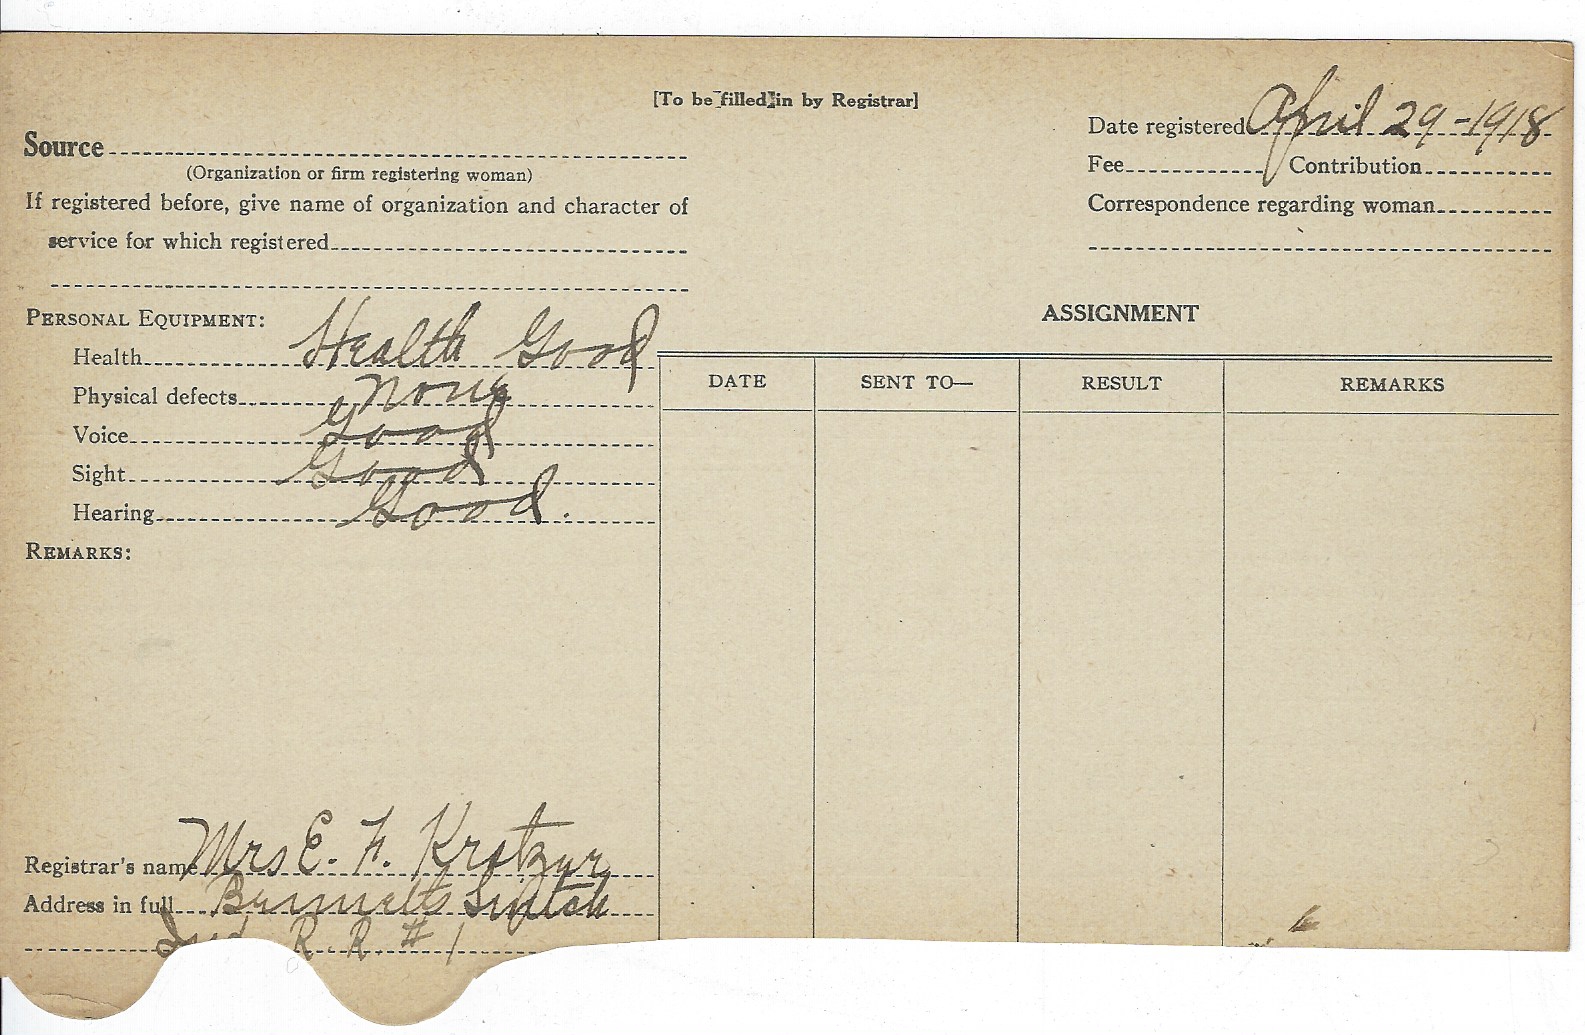 [To be filled in by Registrar]
Date registered April 29-1918
Source
(Organization or firm registering woman)
Fee Contribution
If registered before, give name of organization and character of
Correspondence regarding woman
service for which registered
PERSONAL EQUIPMENT:
Health Health Good
Physical defects None
Voice Good
Sight Good
Hearing Good.
REMARKS:
ASSIGNMENT
DATE SENT TO— RESULT REMARKS
Registrar's name Mrs E. F. Kratzer
Address in full Bennetts Switch
Ind R.R. # 1